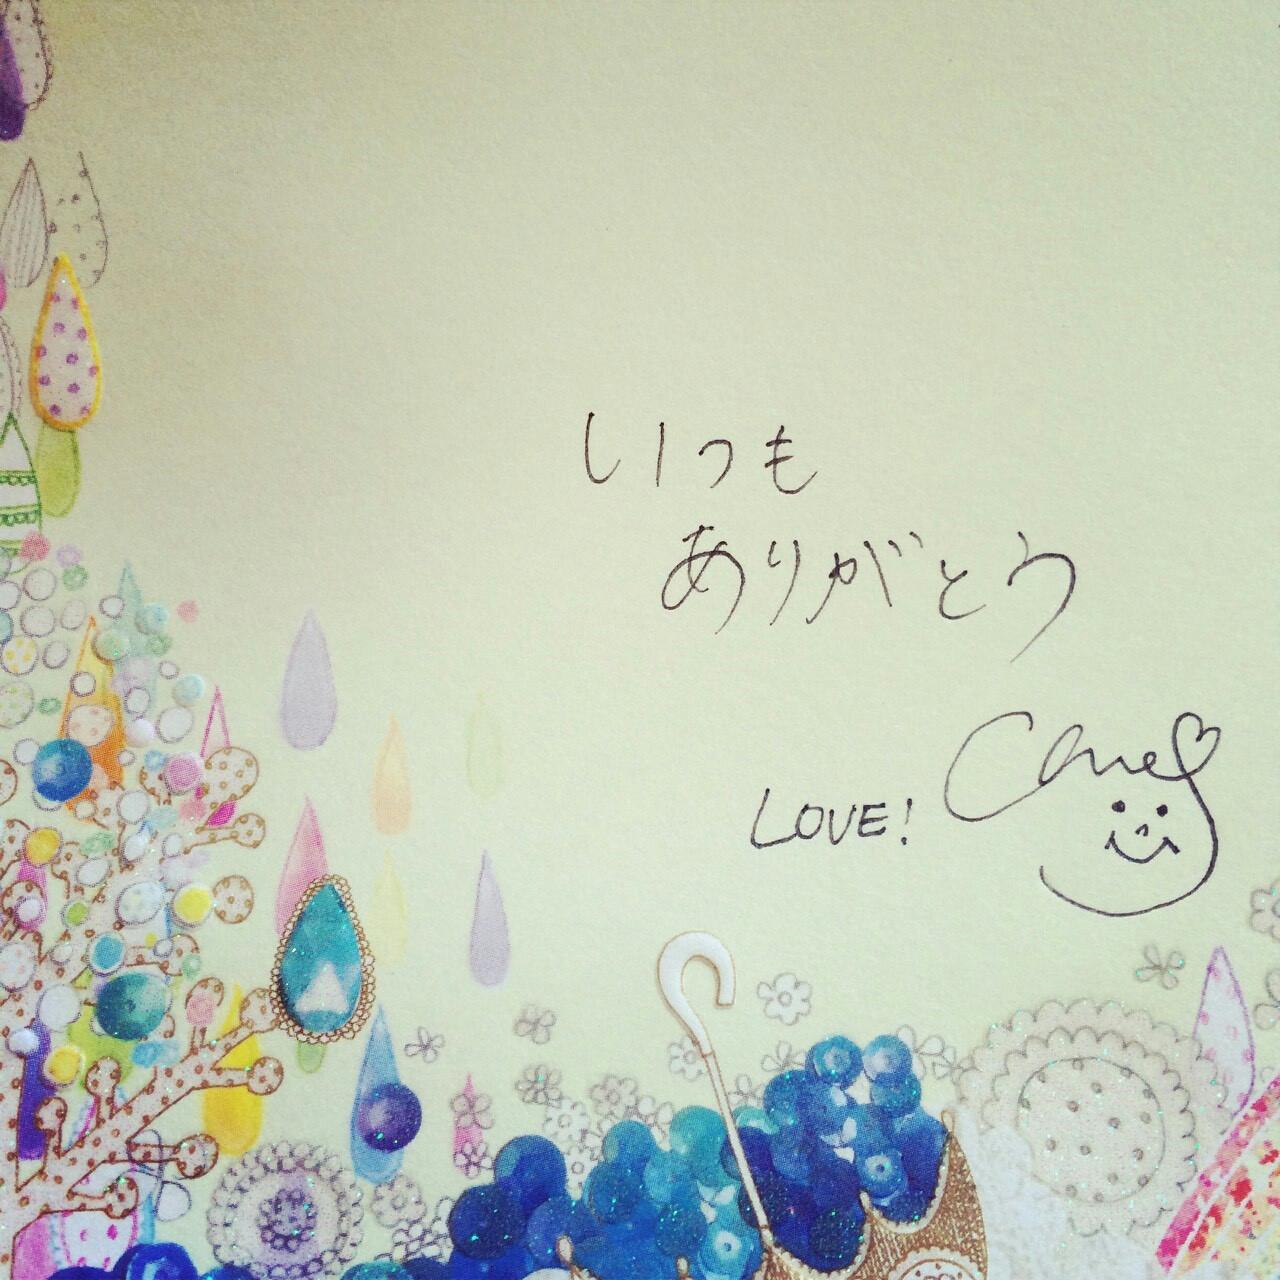 いつも
ありがとう
LOVE!